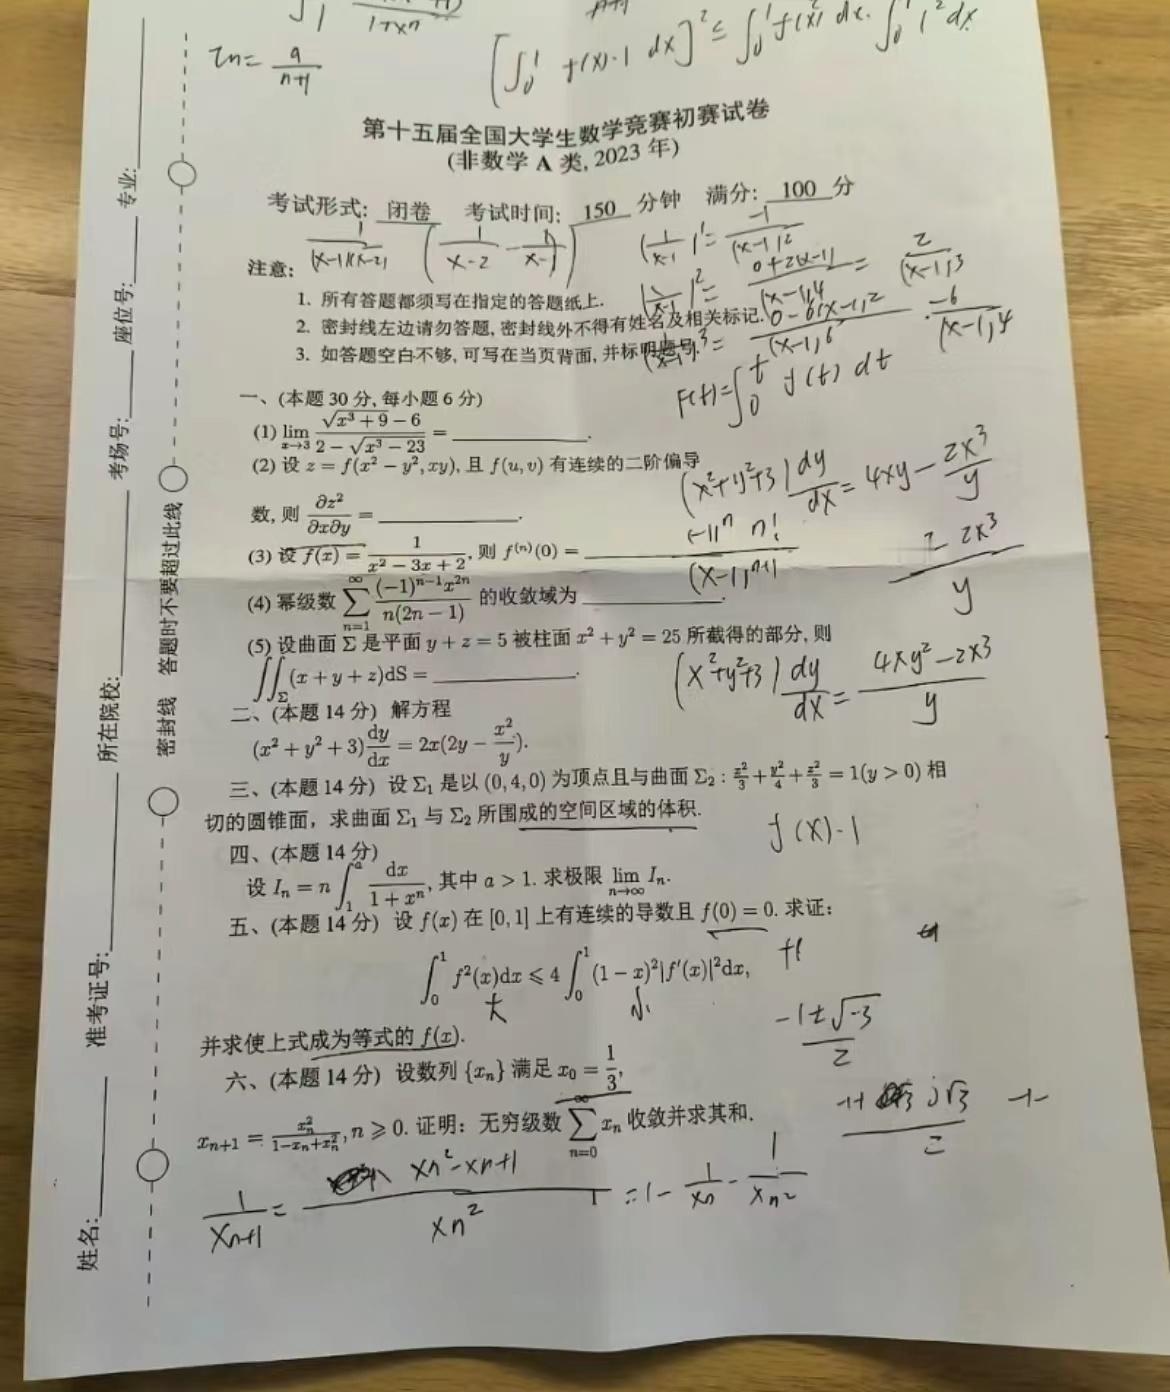 ∫₁ 1+xn
In= a/(n+1)
[∫₀¹ f(x)·1 dx]² ≤ ∫₀¹ f(x)² dx. ∫₀¹ 1² dx.
第十五届全国大学生数学竞赛初赛试卷
(非数学 A 类, 2023 年)
考试形式: 闭卷 考试时间: 150 分钟 满分: 100 分
1/((x-1)(x-2)) (1/(x-2) - 1/(x-1))
(1/(x-1))' = -1/(x-1)²
注意:
(1/(x-1))² = (0+2(x-1))/(x-1)⁴ = 2/(x-1)³
1. 所有答题都须写在指定的答题纸上.
2. 密封线左边请勿答题, 密封线外不得有姓名及相关标记.
3. 如答题空白不够, 可写在当页背面, 并标明题号.
³ = (0-6(x-1)²)/(x-1)⁶ · -6/(x-1)⁴
F(t)=∫₀ᵗ f(t) dt
一、(本题 30 分, 每小题 6 分)
(1) lim_{x→3} (√(x³+9) − 6)/(2 − √(x³−23)) = ______.
(2) 设 z = f(x² − y², xy), 且 f(u, v) 有连续的二阶偏导
数, 则 ∂z²/∂x∂y = ______.
(x²+y²+3) dy/dx = 4xy − 2x³/y
(3) 设 f(x) = 1/(x² − 3x + 2), 则 f⁽ⁿ⁾(0) = ______
(-1)ⁿ n!/(x-1)ⁿ⁺¹
- 2x³/y
(4) 幂级数 ∑_{n=1}^{∞} (−1)ⁿ⁻¹x²ⁿ/(n(2n − 1)) 的收敛域为 ______.
(5) 设曲面 Σ 是平面 y + z = 5 被柱面 x² + y² = 25 所截得的部分, 则
∬_Σ (x + y + z)dS = ______.
(x²+y²+3) dy/dx = (4xy²−2x³)/y
二、(本题 14 分) 解方程
(x² + y² + 3) dy/dx = 2x(2y − x²/y).
三、(本题 14 分) 设 Σ₁ 是以 (0, 4, 0) 为顶点且与曲面 Σ₂ : x²/3 + y²/4 + z²/3 = 1(y > 0) 相
切的圆锥面, 求曲面 Σ₁ 与 Σ₂ 所围成的空间区域的体积.
f(x)·1
四、(本题 14 分)
设 Iₙ = n ∫₁ᵃ dx/(1 + xⁿ), 其中 a > 1. 求极限 lim_{n→∞} Iₙ.
五、(本题 14 分) 设 f(x) 在 [0, 1] 上有连续的导数且 f(0) = 0. 求证:
∫₀¹ f²(x)dx ⩽ 4 ∫₀¹ (1 − x)²|f′(x)|²dx,
大 小
+1
并求使上式成为等式的 f(x).
(-1±√-3)/2
六、(本题 14 分) 设数列 {xₙ} 满足 x₀ = 1/3,
xₙ₊₁ = xₙ²/(1−xₙ+xₙ²), n ⩾ 0. 证明: 无穷级数 ∑_{n=0}^{∞} xₙ 收敛并求其和.
i√3/2
1/xn+1 = (xn²−xn+1)/xn² = 1 − 1/xn − 1/xn²
专业:
座位号:
考场号:
所在院校:
准考证号:
姓名:
密封线 答题时不要超过此线